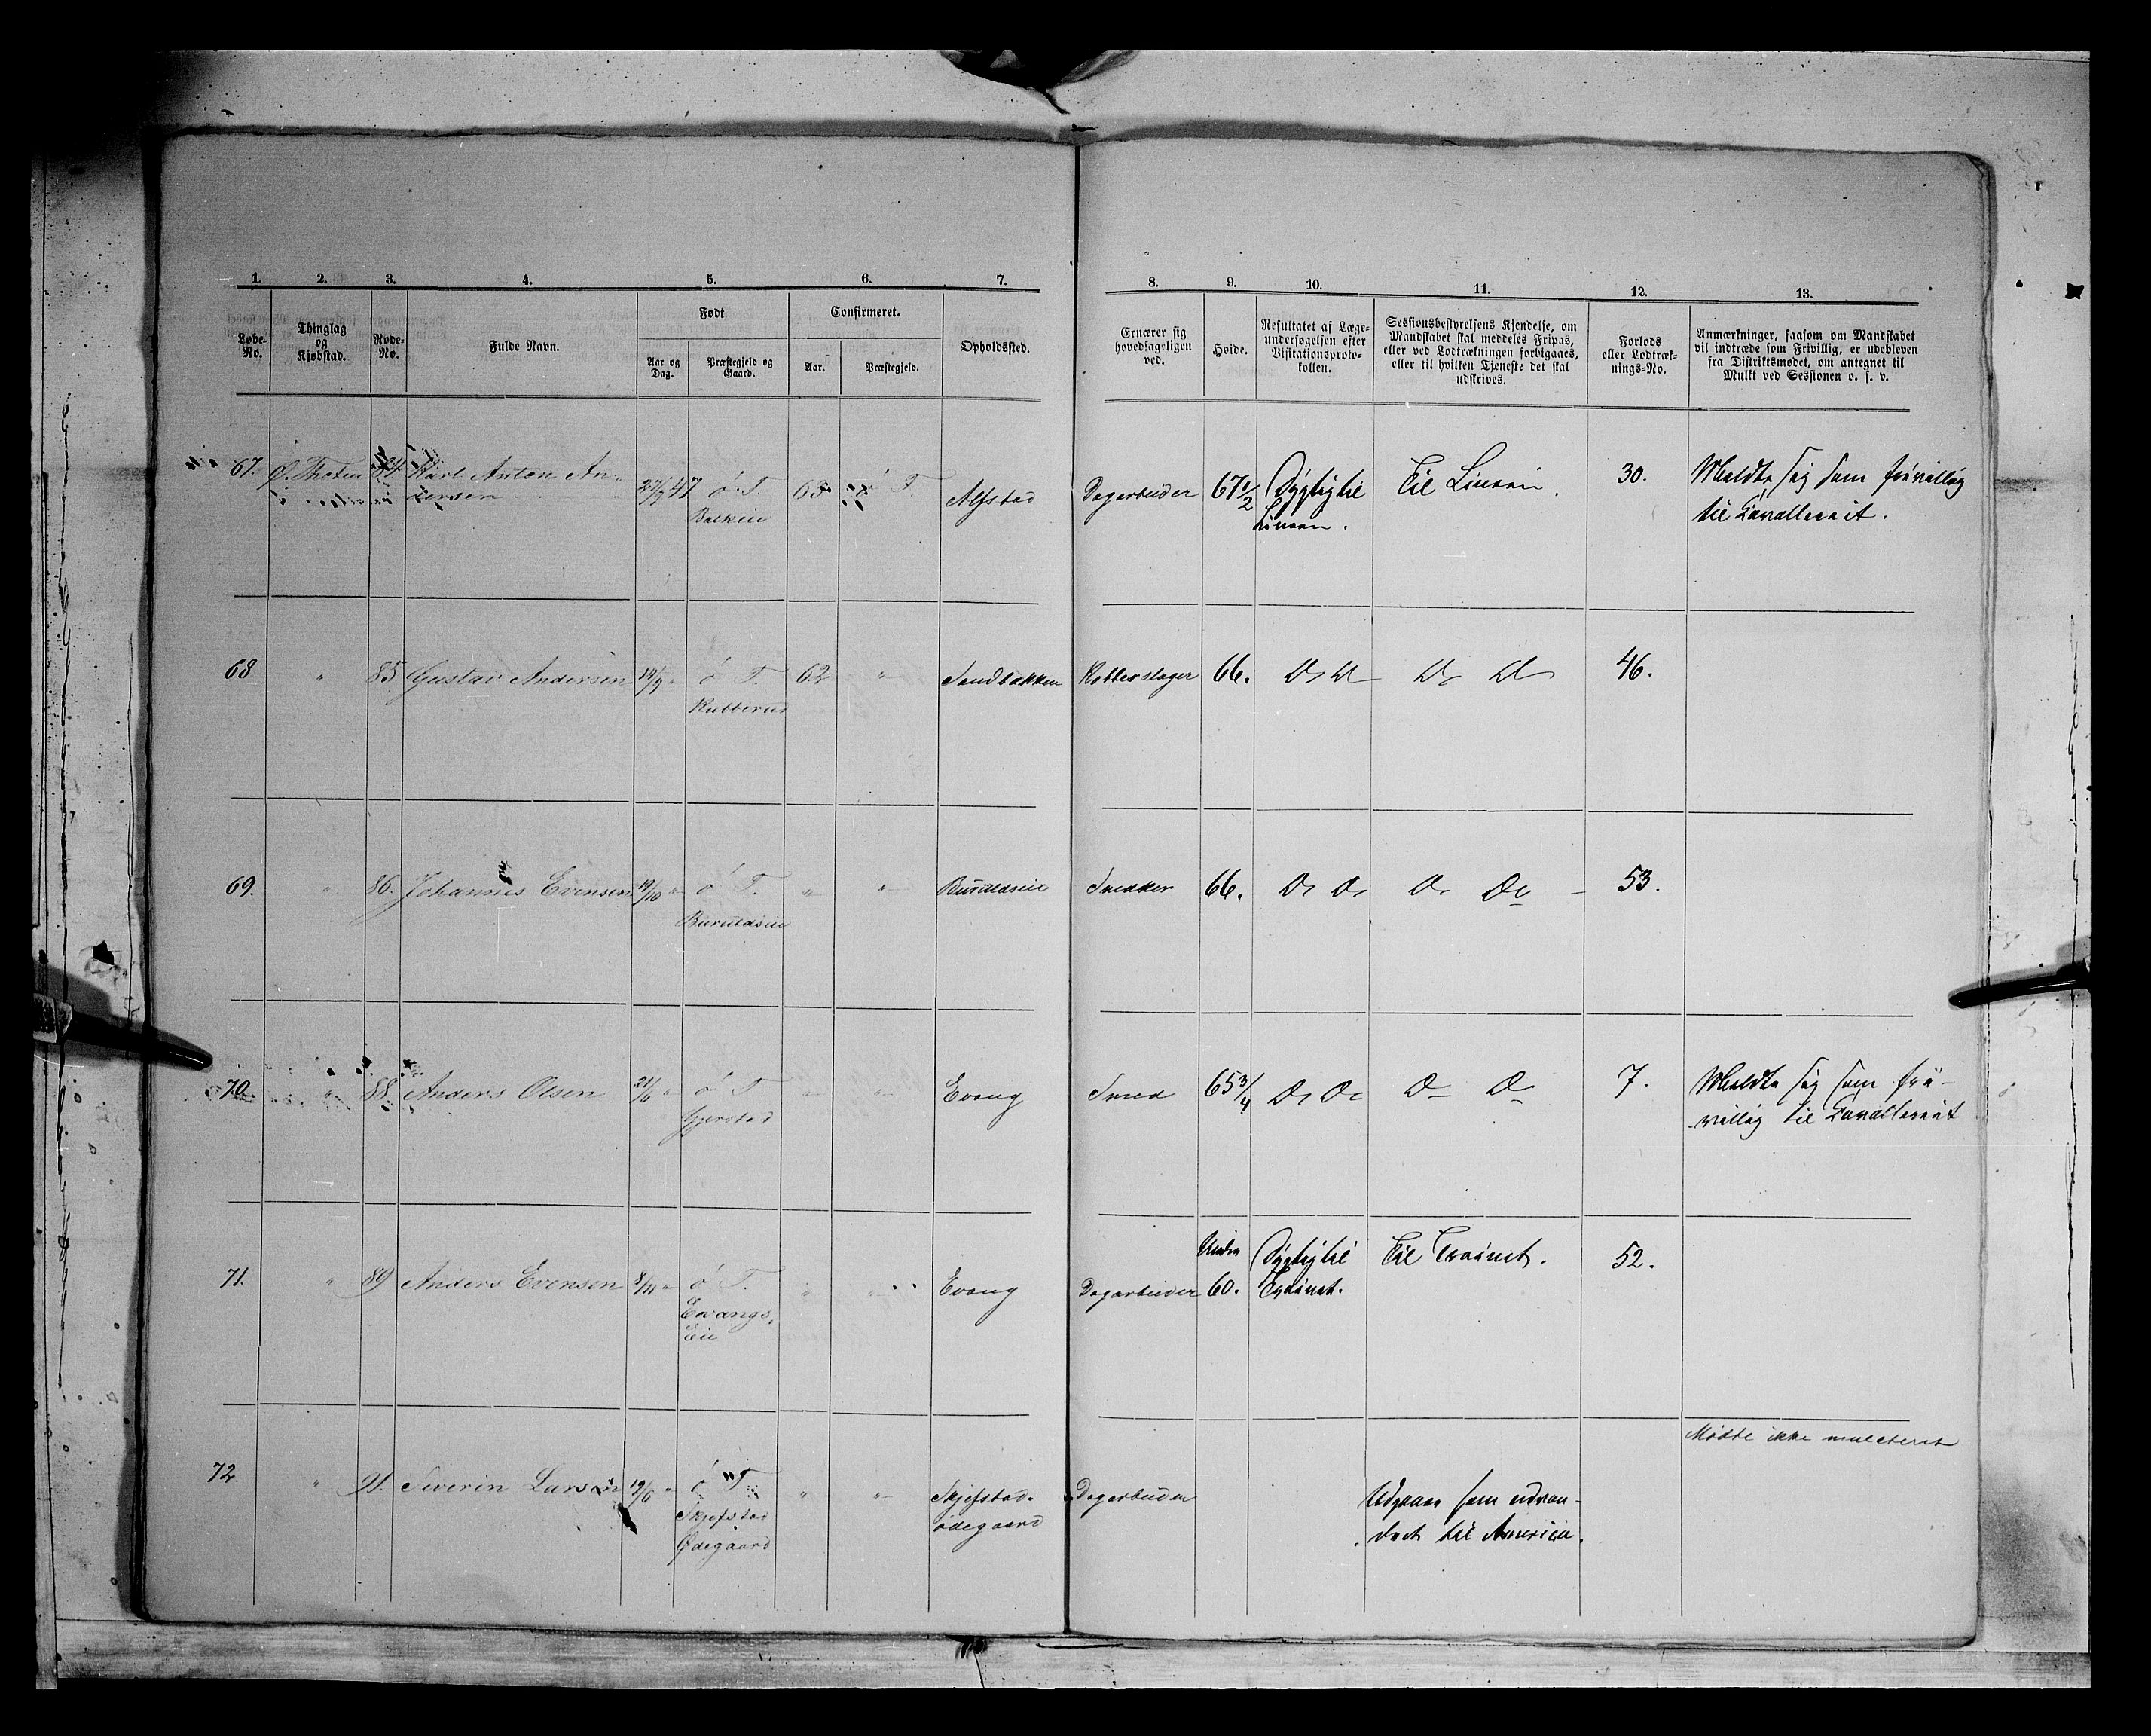 1. 2. 3. 4. 5. 6. 7. 8. 9. 10. 11. 12. 13.
Løbe-
No.
Thinglag
og
Kjøbstad.
Rode-
No.
Fulde Navn.
Født
Aar og
Dag.
Præstegjeld og
Gaard.
Confirmeret.
Aar.
Præstegjeld.
Opholdssted.
Ernærer sig
hovedsageligen
ved.
Høide.
Resultatet af Læge-
undersøgelsen efter
Visitationsproto-
kollen.
Sessionsbestyrelsens Kjendelse, om
Mandskabet skal meddeles Fripas,
eller ved Lodtrækningen forbigaaes,
eller til hvilken Tjeneste det skal
udskrives.
Forlods
eller Lodtræk-
nings-No.
Anmærkninger, saasom om Mandskabet
vil indtræde som Frivillig, er udebleven
fra Distriktsmødet, om antegnet til
Mulkt ved Sessionen o. s. v.
67. Ø. Thoten 84 Karl Anton An- 47 Ø. T. 63 Ø T. Alfstad Dagarbeider 67 1/2 Dygtig til Til Linien. 30. Meldte sig som frivillig
dersen Linien. til Cavalleriet.
68 " 85 Gustav Andersen 14/9 " Ø T. 62 " Sandbakken Kobberslager 66. Do Do Do Do 46.
69. " 86. Johannes Evensen 19/10 " Ø T. " " Buruldseie Snedker 66. Do Do Do Do 53.
Buruldseie
70. " 88. Anders Olsen 21/6 " Ø T " " Evang Smed 65 3/4 Do Do Do Do 7. Meldte sig som fri-
Gjerstad villig til Cavalleriet
71. " 89 Anders Evensen 8/11 " Ø T. " " Evang Dagarbeider Under 60. Dygtig til Til Trainet. 52.
Evangs- Trainet.
Eie
Mødte ikke mulcteret
72. " 91. Severin Larsen 19/6 " Ø T " " Skjefstad- Dagarbeider Udgaaer som udvan-
Skjefstad ødegaard dret til America.
Ødegaard